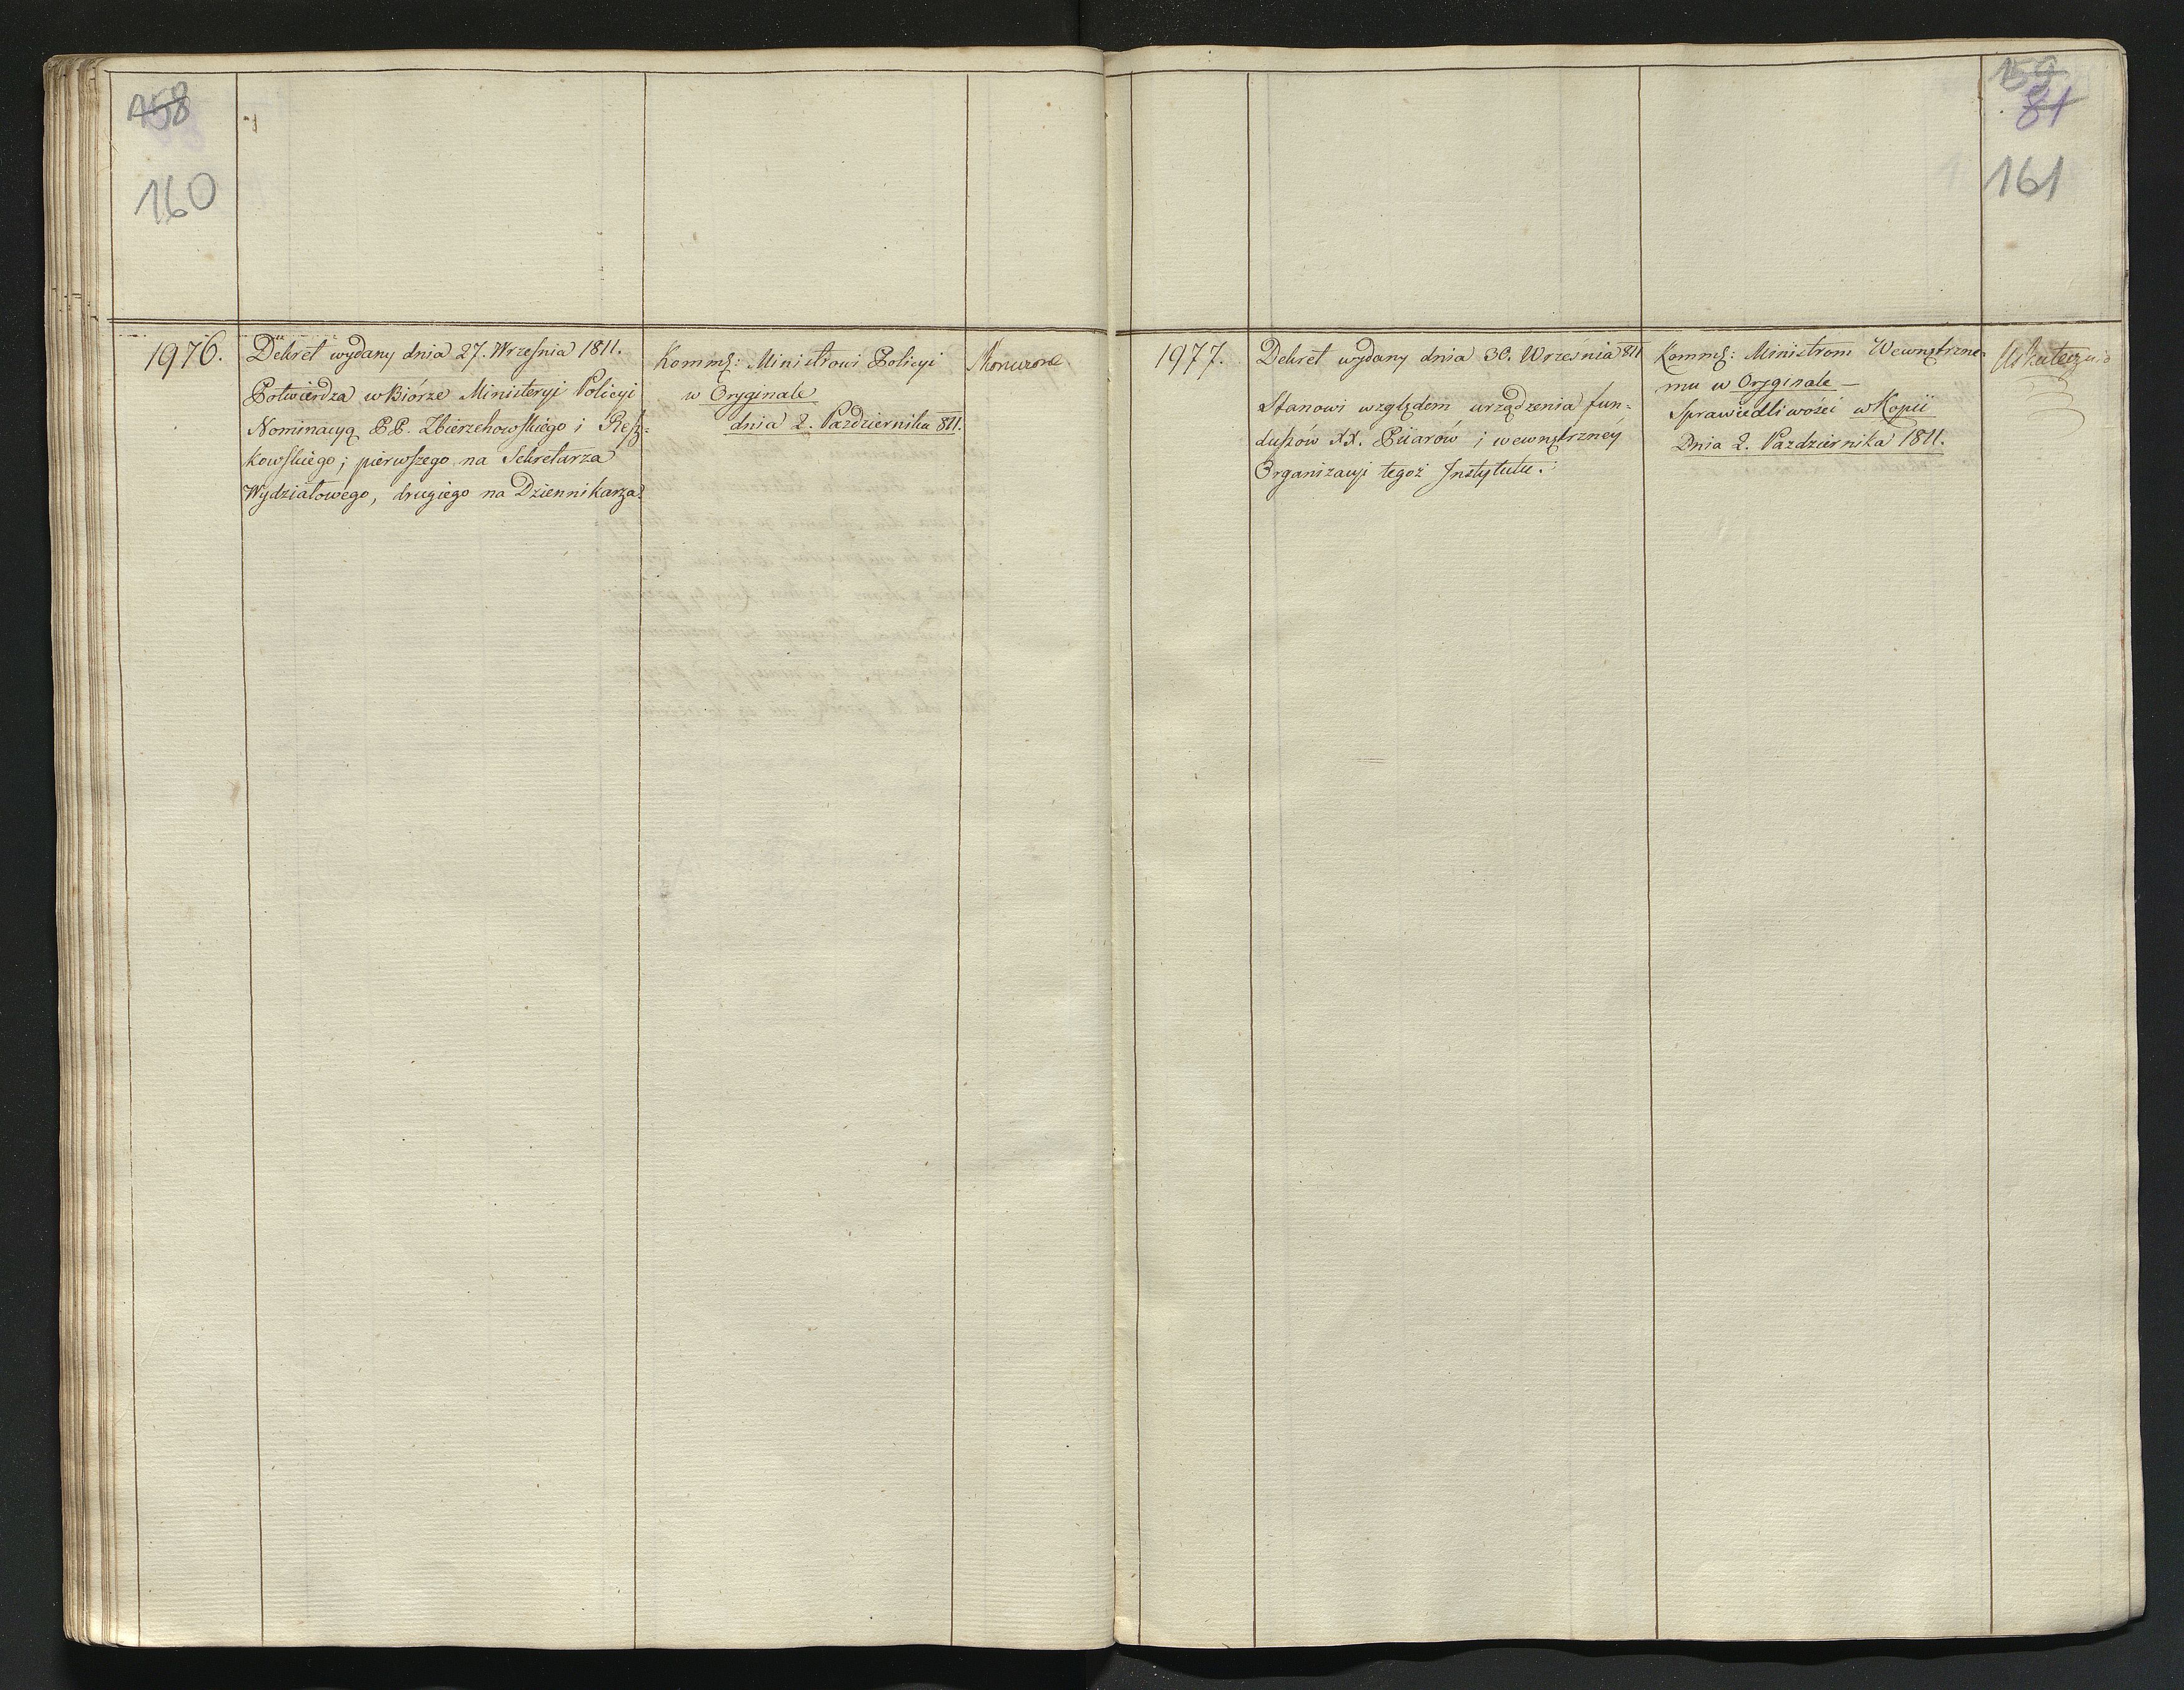 158
160
1976.
Dekret wydany dnia 27. Września 1811.
Potwierdza w Biórze Ministeryi Policyi
Nominacyą PP. Zbierzchowskiego i Resz-
kowskiego; pierwszego na Sekretarza
Wydziałowego, drugiego na Dziennikarza.
Kommss: Ministrowi Policyi
w Oryginale
dnia 2. Października 811.
Skończone
159
81
161
1977.
Dekret wydany dnia 30. Września 811
Stanowi względem urządzenia fun-
duszów XX. Piiarów i wewnętrzney
Organizacyi tegoż Instytutu.
Kommss: Ministrom Wewnętrzne-
mu w Oryginale —
Sprawiedliwości w Kopii
Dnia 2. Października 1811.